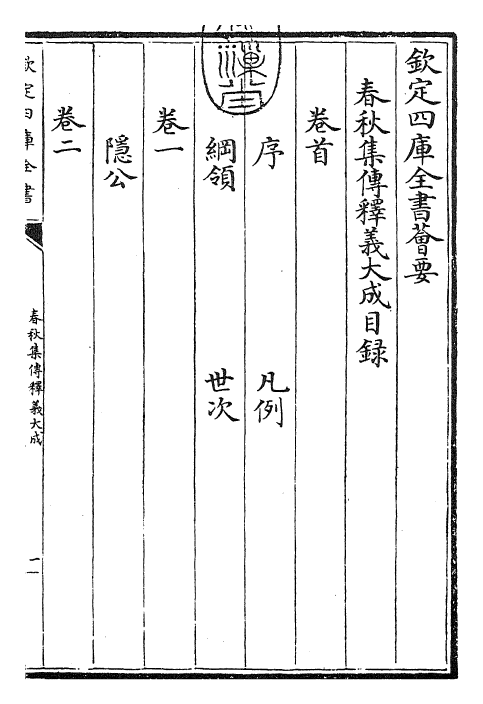 欽定四庫全書薈要
春秋集傳釋義大成目錄
卷首
序　凡例
綱領　世次
卷一
隱公
卷二
欽定四庫全書
春秋集傳釋義大成
一